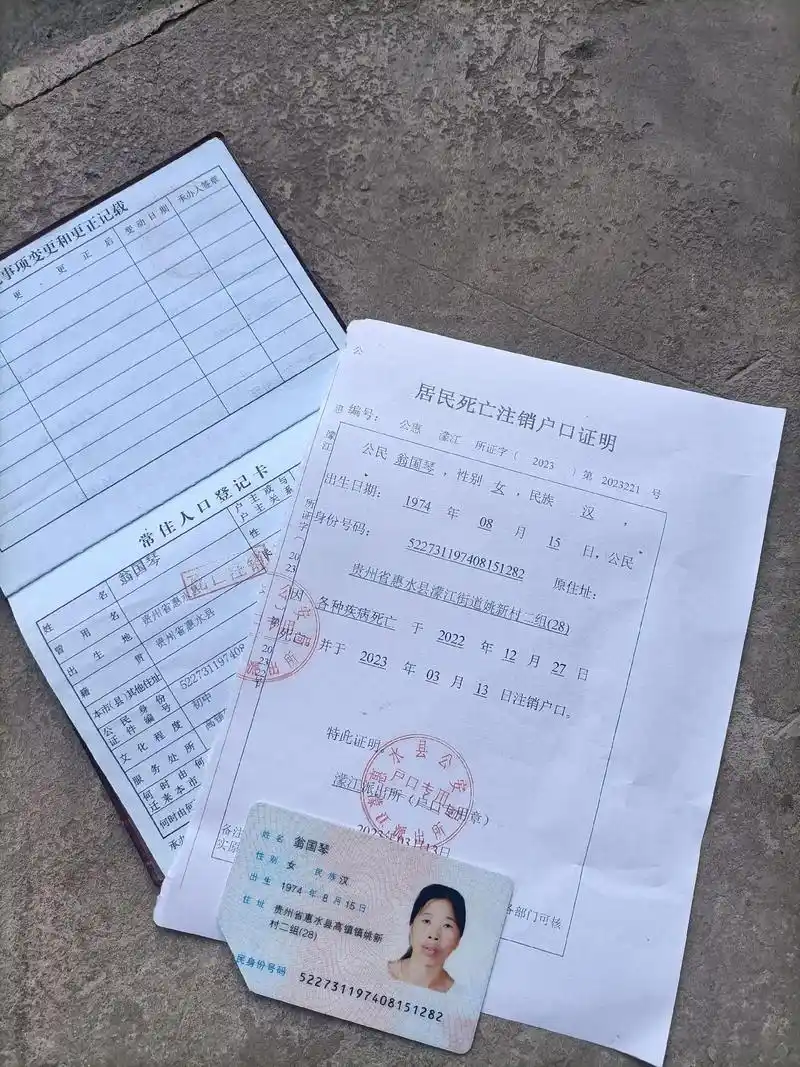 事项变更和更正记载
更正后
变动日期
承办人签章
常住人口登记卡
姓名
翁国琴
户主或与
户主关系
曾用名
性
出生地
贵州省惠水县
籍贯
贵州省惠水县
本市(县)其他住址
公民身份
证件编号
522731197408
文化程度
初中
服务处所
何时由何
迁来本市
何时由何
承办
居民死亡注销户口证明
编号: 公惠 濛江 所证字( 2023 )第 2023221 号
公民 翁国琴 ,性别 女 ,民族 汉 ,
出生日期: 1974 年 08 月 15 日,公民
身份号码: 522731197408151282 原住址:
贵州省惠水县濛江街道姚新村二组(28)
因
各种疾病死亡 于 2022 年 12 月 27 日
死亡
并于 2023 年 03 月 13 日注销户口。
特此证明。
水县公安
户口专用
濛江派出所
濛江派出所(户口专用章)
2023年03月13日
备注
各部门可核
实原
姓名 翁国琴
性别 女 民族 汉
出生 1974 年 8 月 15 日
住址 贵州省惠水县高镇镇姚新
村二组(28)
民身份号码 522731197408151282